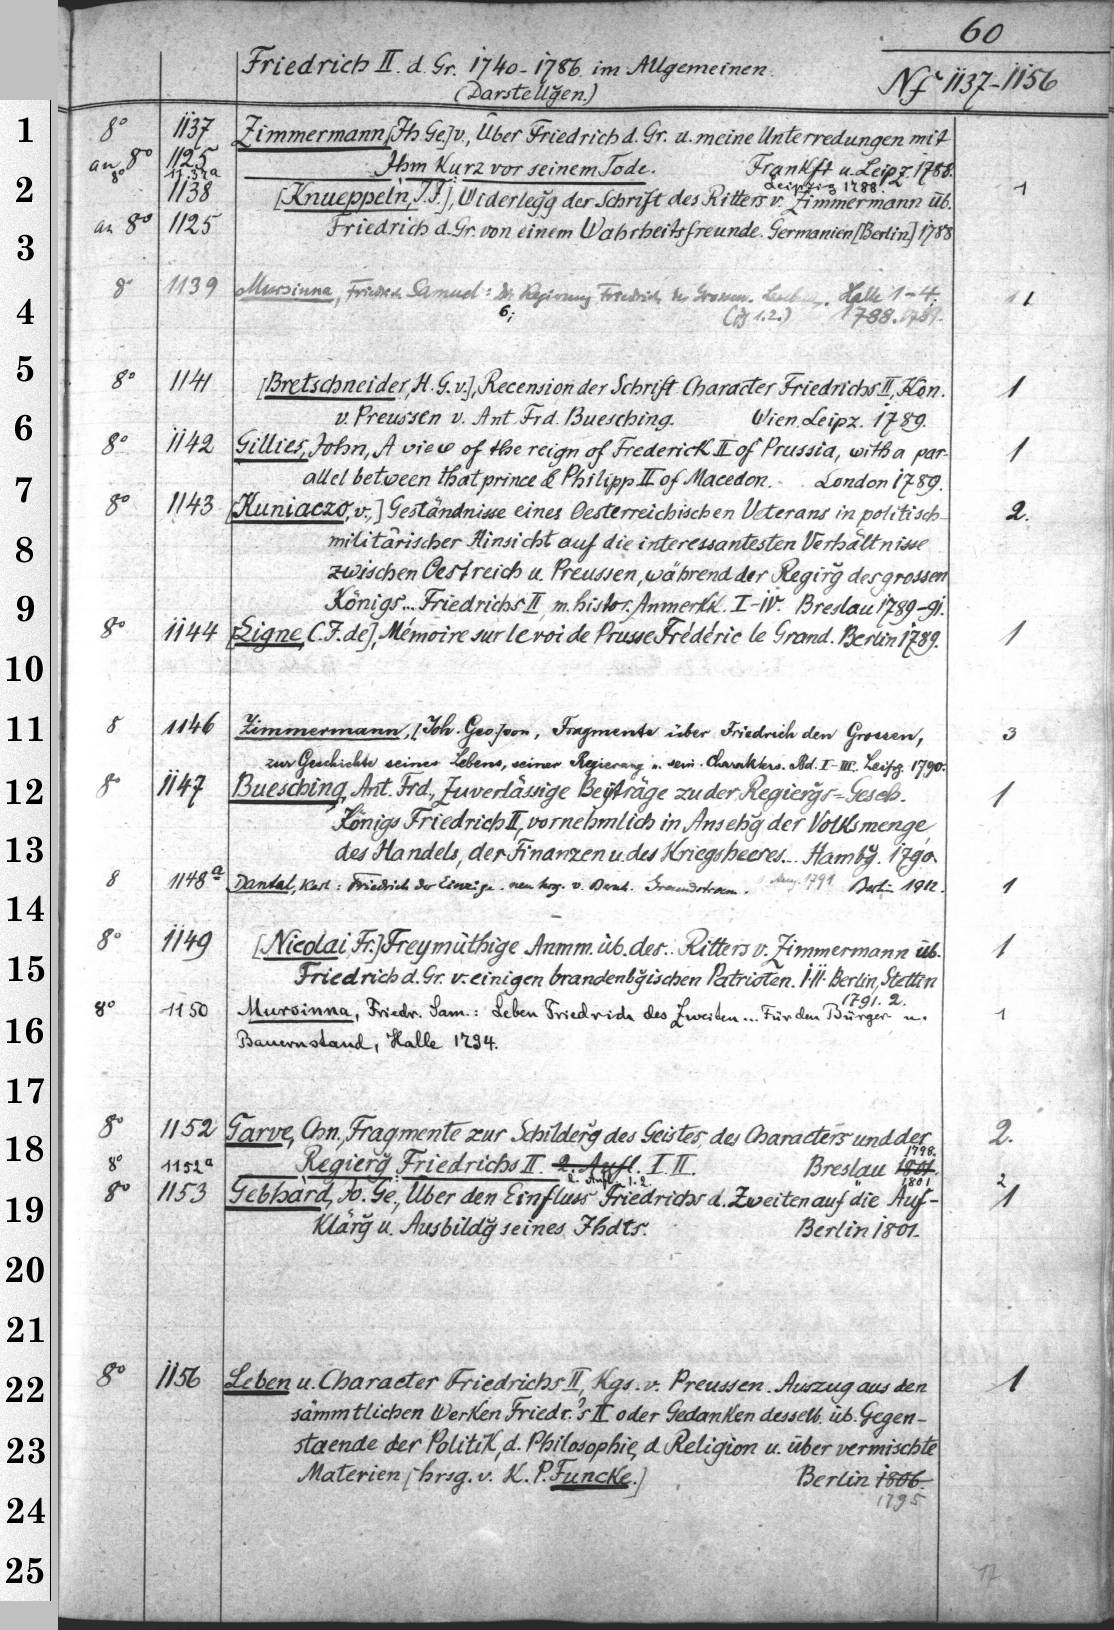 60
Friedrich II. d. Gr. 1740-1786. im Allgemeinen.
(Darstellgen.)
No 1137-1156
1
8° 1137 Zimmermann, [Jh Ge] v., Über Friedrich d. Gr. u. meine Unterredungen mit
an 8° 1125 Ihm Kurz vor seinem Tode. Frankft u. Leipz. 1788.
8° 1137a Leipzig 1788.
2
1138 [Knueppeln, J. F.], Widerlegg der Schrift des Ritters v. Zimmermann üb. 1
an 8° 1125 Friedrich d. Gr. von einem Wahrheitsfreunde. Germanien [Berlin] 1788
3
8° 1139 Mursinna, Friedrich Samuel: Die Regierung Friedrich des Grossen. Halle 1-4.
4
6; 1.2.) 1788. 1789.
5
8° 1141 [Bretschneider, H. G. v.], Recension der Schrift Character Friedrichs II, Kön. 1
6
v. Preussen v. Ant. Frd. Buesching. Wien. Leipz. 1789.
8° 1142 Gillies, John, A view of the reign of Frederick II of Prussia, with a par- 1
7
allel between that prince & Philipp II of Macedon. London 1789.
8° 1143 [Kuniaczo, v.,] Geständnisse eines Oesterreichischen Veterans in politisch- 2.
8
militärischer Hinsicht auf die interessantesten Verhältnisse
zwischen Oestreich u. Preussen, während der Regirg des grossen
9
Königs... Friedrichs II, m. histor. Anmerkk. I-IV. Breslau 1789-91.
8° 1144 [Ligne, C. J. de], Mémoire sur le roi de Prusse Frédéric le Grand. Berlin 1789. 1
10
11
8 1146 Zimmermann, [Joh. Geo.] von, Fragmente über Friedrich den Grossen, 3
zur Geschichte seines Lebens, seiner Regierung u. sein. Charakters. Bd. I-III. Leipzg. 1790.
12
8° 1147 Buesching, Ant. Frd., Zuverlässige Beyträge zu der Regiergs-Gesch. 1
Königs Friedrich II, vornehmlich in Ansehg der Volksmenge,
13
des Handels, der Finanzen u. des Kriegsheeres... Hambg. 1790.
8 1148a Dantal, Karl: Friedrich der Einzige. neu hrsg. v. 1791 Berlin 1912. 1
14
8° 1149 [Nicolai Fr.] Freymüthige Anmm. üb. des.. Ritters v. Zimmermann üb. 1
15
Friedrich d. Gr. v. einigen brandenbgischen Patrioten. I.II. Berlin, Stettin
1791. 2.
8° 1150 Mursinna, Friedr. Sam.: Leben Friedrichs des Zweiten... Für den Bürger- u. 1
16
Bauernstand, Halle 1794.
17
8° 1152 Garve, Chn., Fragmente zur Schilderg des Geistes, des Characters und der 2.
18
1798.
8° 1152a Regierg Friedrichs II. 2. Aufl. I II. Breslau 1801.
2. Aufl. 1.2. 1801 2
8° 1153 Gebhard, Jo. Ge., Über den Einfluss Friedrichs d. Zweiten auf die Auf- 1
19
klärg u. Ausbildg seines Jhdts. Berlin 1801.
20
21
22
8° 1156 Leben u. Character Friedrichs II, Kgs. v. Preussen. Auszug aus den 1
sämmtlichen Werken Friedr.'s II oder Gedanken desselb. üb. Gegen-
23
staende der Politik, d. Philosophie, d. Religion u. über vermischte
Materien [hrsg. v. K. P. Funcke.] Berlin 1806.
1795
24
25
17